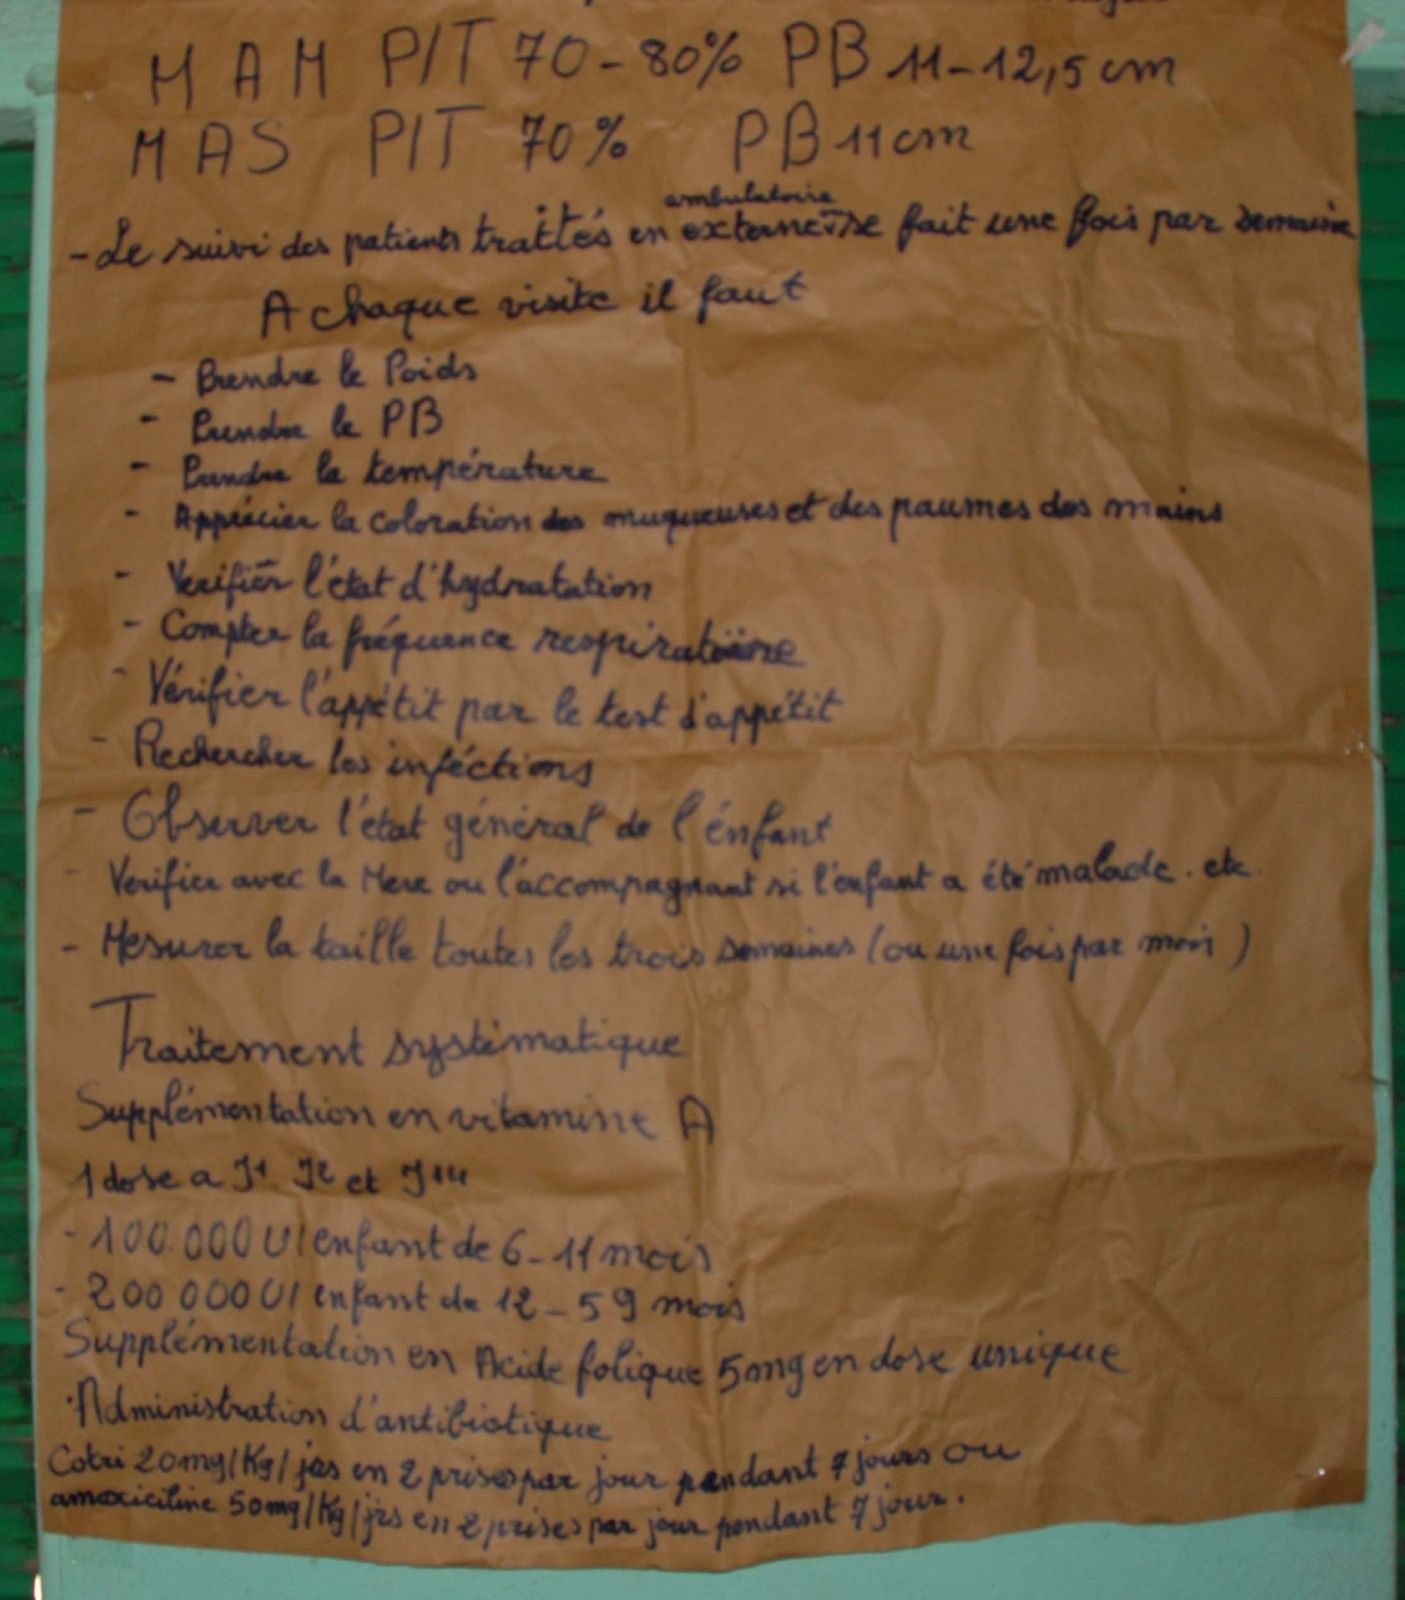 MAM PIT 70-80% PB 11-12,5 cm
MAS PIT 70% PB 11 cm
ambulatoire
- Le suivi des patients traités en externe se fait une fois par semaine
A chaque visite il faut
- Prendre le Poids
- Prendre le PB
- Prendre la température
- Apprécier la coloration des muqueuses et des paumes des mains
- Verifier l'état d'hydratation
- Compter la fréquence respiratoire
- Vérifier l'appétit par le test d'appétit
- Rechercher les inféctions
- Observer l'état général de l'énfant
- Verifier avec la Mere ou l'accompagnant si l'enfant a été malade. etc.
- Mesurer la taille toutes les trois semaines (ou une fois par mois)
Traitement systématique
Supplémentation en vitamine A
1 dose a J1 J2 et J14
- 100.000 UI enfant de 6-11 mois
- 200 000 UI enfant de 12-59 mois
Supplémentation en Acide folique 5mg en dose unique
. Administration d'antibiotique
Cotri 20mg/Kg/jrs en 2 prises par jour pendant 7 jours ou
amoxiciline 50mg/Kg/jrs en 2 prises par jour pendant 7 jour.